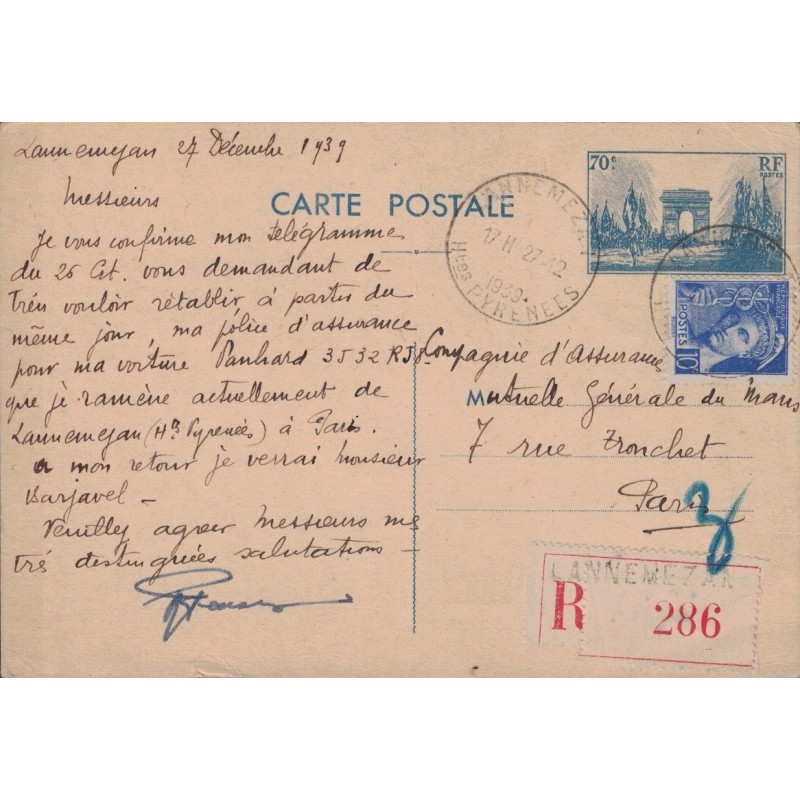 Lannemezan 27 Décembre 1939
Messieurs
Je vous confirme mon télégramme
du 26 Ct. vous demandant de
très vouloir rétablir à partir du
même jour, ma police d'assurance
pour ma voiture Panhard 3532 RJ8
que je ramène actuellement de
Lannemezan (Htes Pyrenées) à Paris.
A mon retour je verrai Monsieur
Barjavel -
Veuillez agréer Messieurs mes
très distinguées salutations -
CARTE POSTALE
LANNEMEZAN
17 H 27-12
1939
Htes PYRENEES
70c
RF
POSTES
POSTES
10
Compagnie d'Assurance
Mutuelle Générale du Mans
7 rue Tronchet
Paris
LANNEMEZAN
R 286